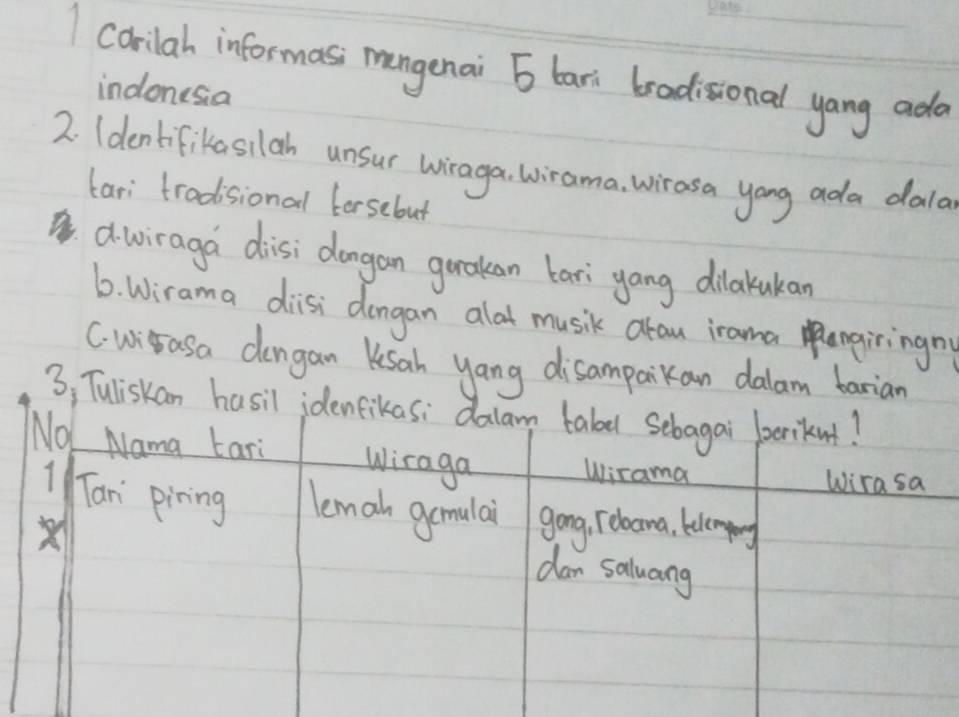 1 Carilah informasi mengenai 5 tari tradisional yang ada
indonesia
2. Identifikasilah unsur wiraga. wirama. wirasa yang ada dalam
tari tradisional tersebut
a. wiraga diisi dengan gerakan tari yang dilakukan
b. Wirama diisi dengan alat musik atau irama pengiringny
C. wirasa dengan kisah yang disampaikan dalam tarian
3, Tuliskan hasil idenfikasi dalam tabel sebagai berikut!
No Nama tari Wiraga Wirama Wirasa
1 Tari piring lemah gemulai gong, rebana, telempong
dan saluang